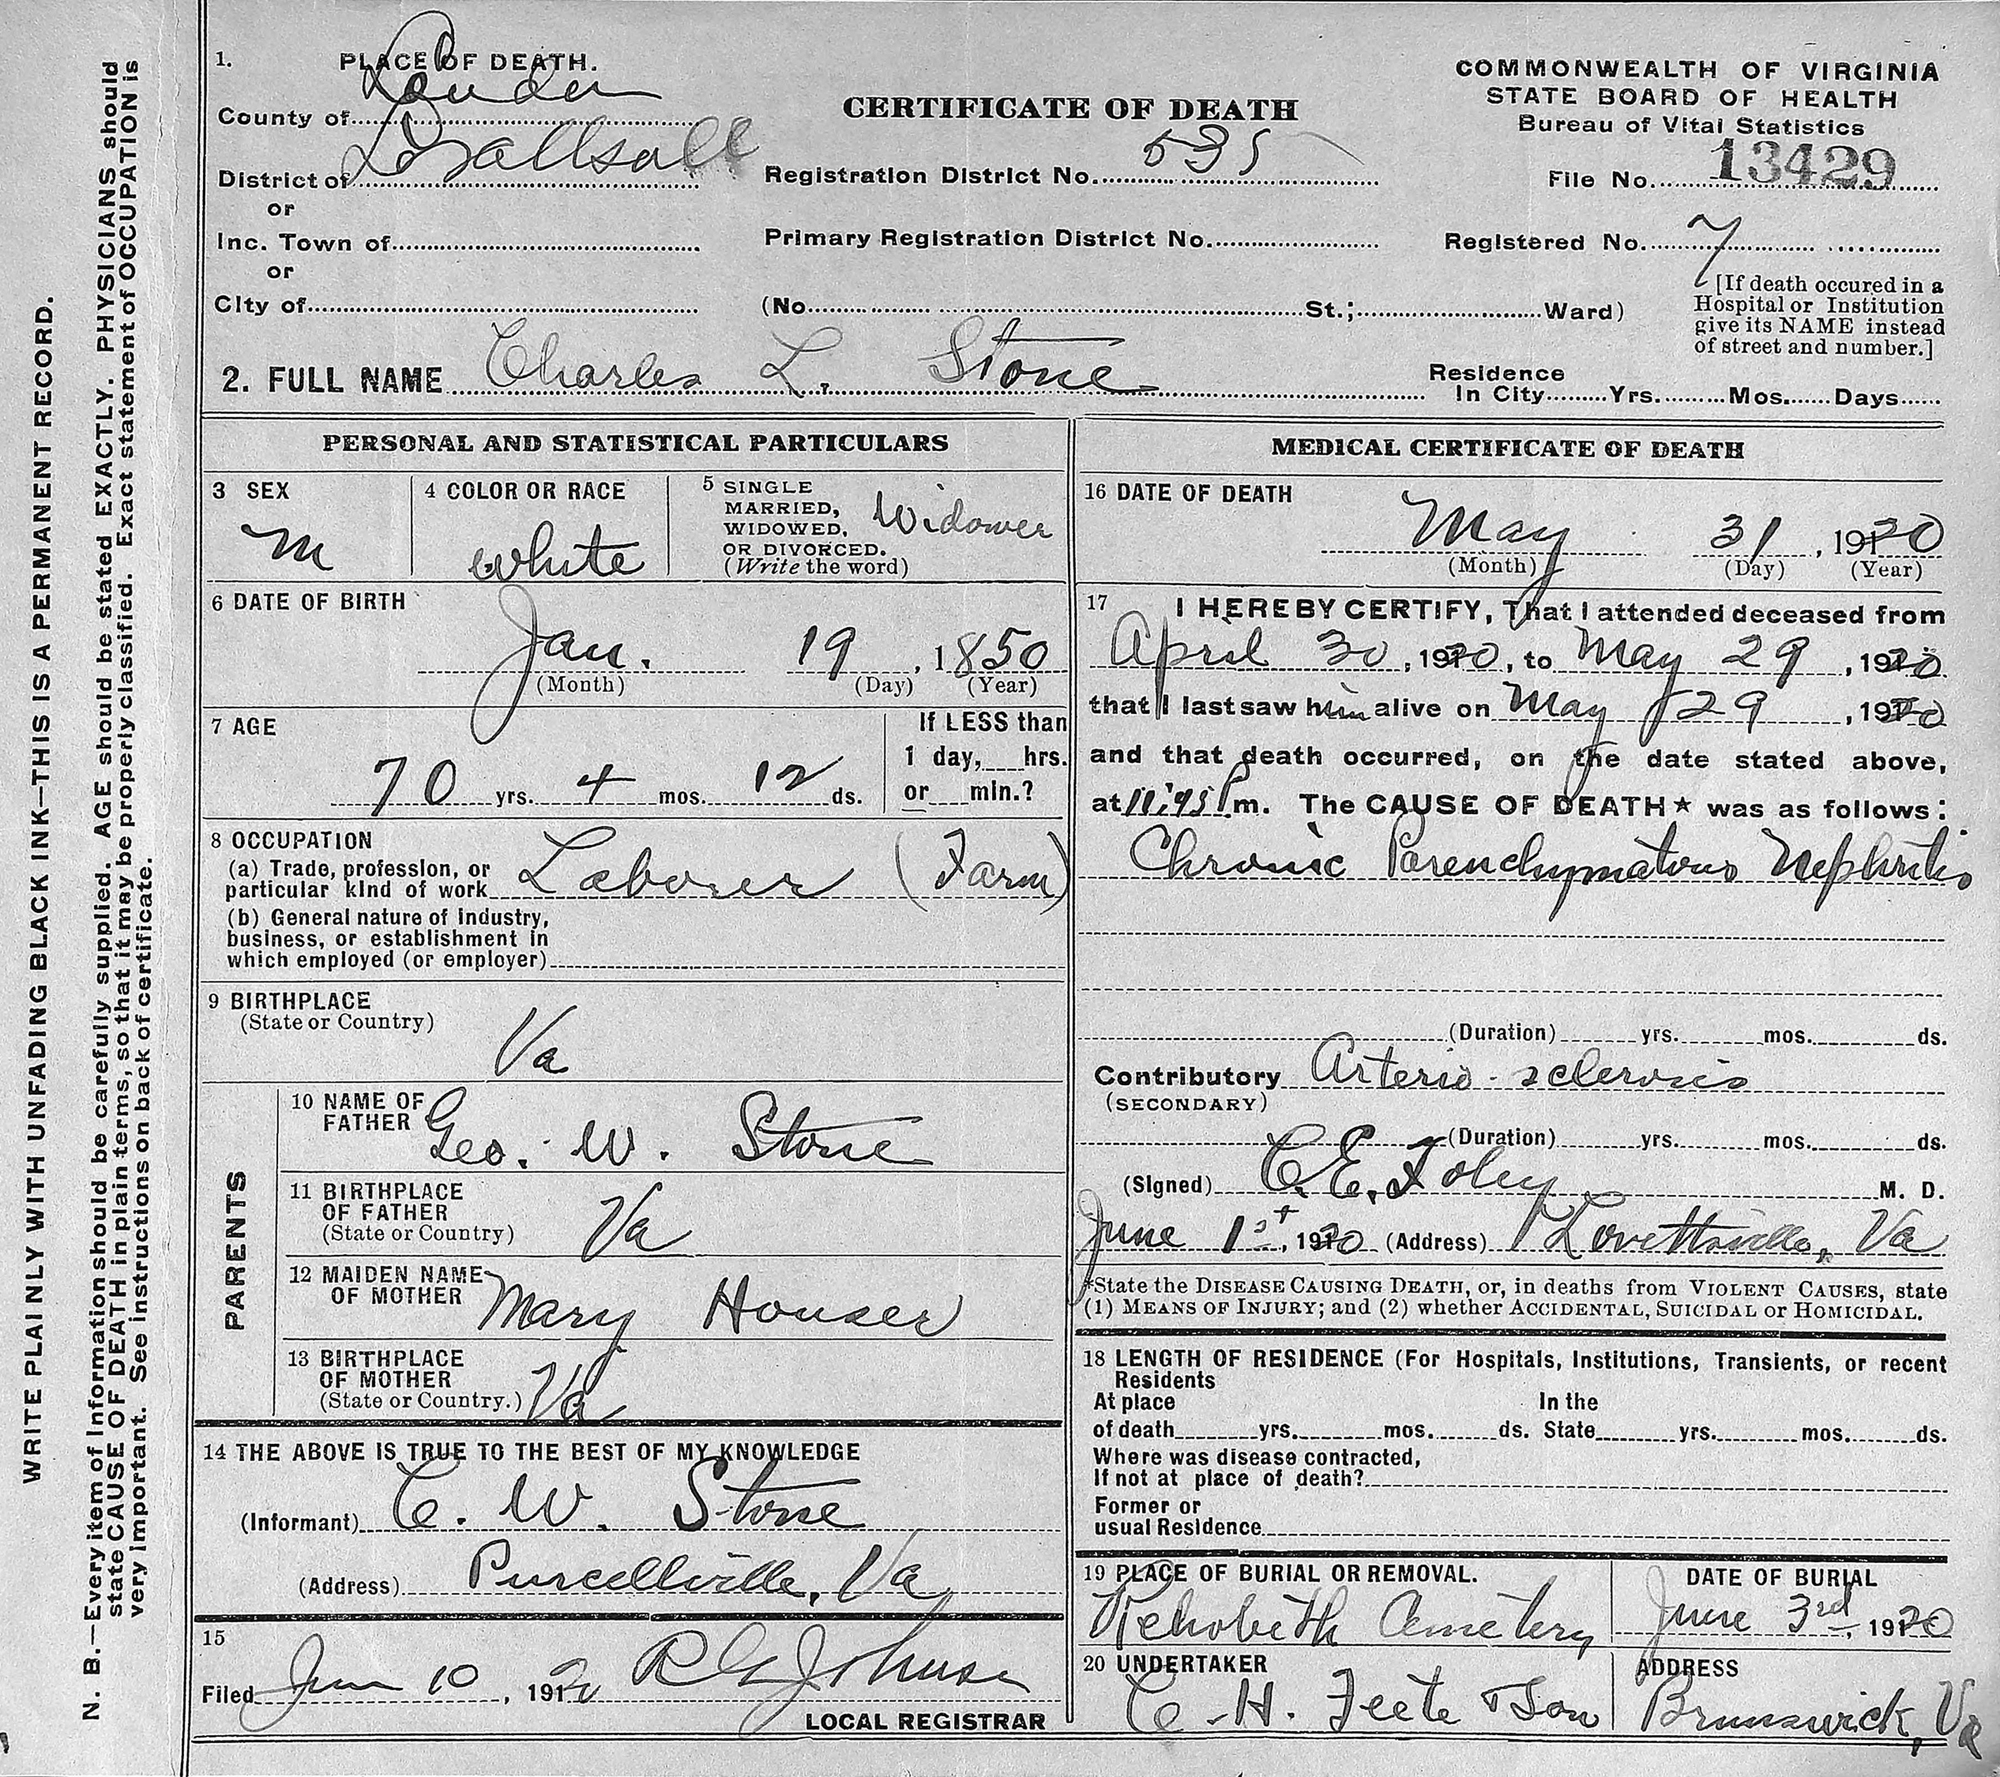 WRITE PLAINLY WITH UNFADING BLACK INK—THIS IS A PERMANENT RECORD.
N. B.—Every item of Information should be carefully supplied. AGE should be stated EXACTLY. PHYSICIANS should
state CAUSE OF DEATH in plain terms, so that it may be properly classified. Exact statement of OCCUPATION is
very important. See instructions on back of certificate.
1. PLACE OF DEATH.
County of
District of
or
Inc. Town of
or
City of
CERTIFICATE OF DEATH
Registration District No. 535
Primary Registration District No.
(No. St.; Ward)
COMMONWEALTH OF VIRGINIA
STATE BOARD OF HEALTH
Bureau of Vital Statistics
File No. 13429
Registered No. 7
[If death occured in a
Hospital or Institution
give its NAME instead
of street and number.]
2. FULL NAME Charles L. Stone
Residence
In City Yrs. Mos. Days
PERSONAL AND STATISTICAL PARTICULARS
3 SEX
m
4 COLOR OR RACE
white
5 SINGLE
MARRIED,
WIDOWED,
OR DIVORCED.
(Write the word)
Widower
6 DATE OF BIRTH
Jan. 19, 1850
(Month) (Day) (Year)
7 AGE
70 yrs. 4 mos. 12 ds.
If LESS than
1 day, hrs.
or min.?
8 OCCUPATION
(a) Trade, profession, or
particular kind of work Laborer (Farm)
(b) General nature of industry,
business, or establishment in
which employed (or employer)
9 BIRTHPLACE
(State or Country)
Va
PARENTS
10 NAME OF
FATHER Geo. W. Stone
11 BIRTHPLACE
OF FATHER
(State or Country) Va
12 MAIDEN NAME
OF MOTHER Mary Houser
13 BIRTHPLACE
OF MOTHER
(State or Country.) Va
14 THE ABOVE IS TRUE TO THE BEST OF MY KNOWLEDGE
(Informant) C. W. Stone
(Address) Purcellville, Va
15
Filed 10, 191 Johnson
LOCAL REGISTRAR
MEDICAL CERTIFICATE OF DEATH
16 DATE OF DEATH
May 31, 1920
(Month) (Day) (Year)
17 I HEREBY CERTIFY, That I attended deceased from
April 30, 1920, to May 29, 1920
that I last saw him alive on May 29, 1920
and that death occurred, on the date stated above,
at 11:45 P m. The CAUSE OF DEATH* was as follows:
Chronic Parenchymatous Nephritis
(Duration) yrs. mos. ds.
Contributory Arterio-sclerosis
(SECONDARY)
(Duration) yrs. mos. ds.
(Signed) C. E. Foley M. D.
June 1st, 1920 (Address) Lovettsville, Va
*State the DISEASE CAUSING DEATH, or, in deaths from VIOLENT CAUSES, state
(1) MEANS OF INJURY; and (2) whether ACCIDENTAL, SUICIDAL or HOMICIDAL.
18 LENGTH OF RESIDENCE (For Hospitals, Institutions, Transients, or recent
Residents
At place In the
of death yrs. mos. ds. State yrs. mos. ds.
Where was disease contracted,
If not at place of death?
Former or
usual Residence
19 PLACE OF BURIAL OR REMOVAL.
Rehobeth Cemetery
DATE OF BURIAL
June 3rd, 1920
20 UNDERTAKER
C. H. Feete & Son
ADDRESS
Brunswick, Va